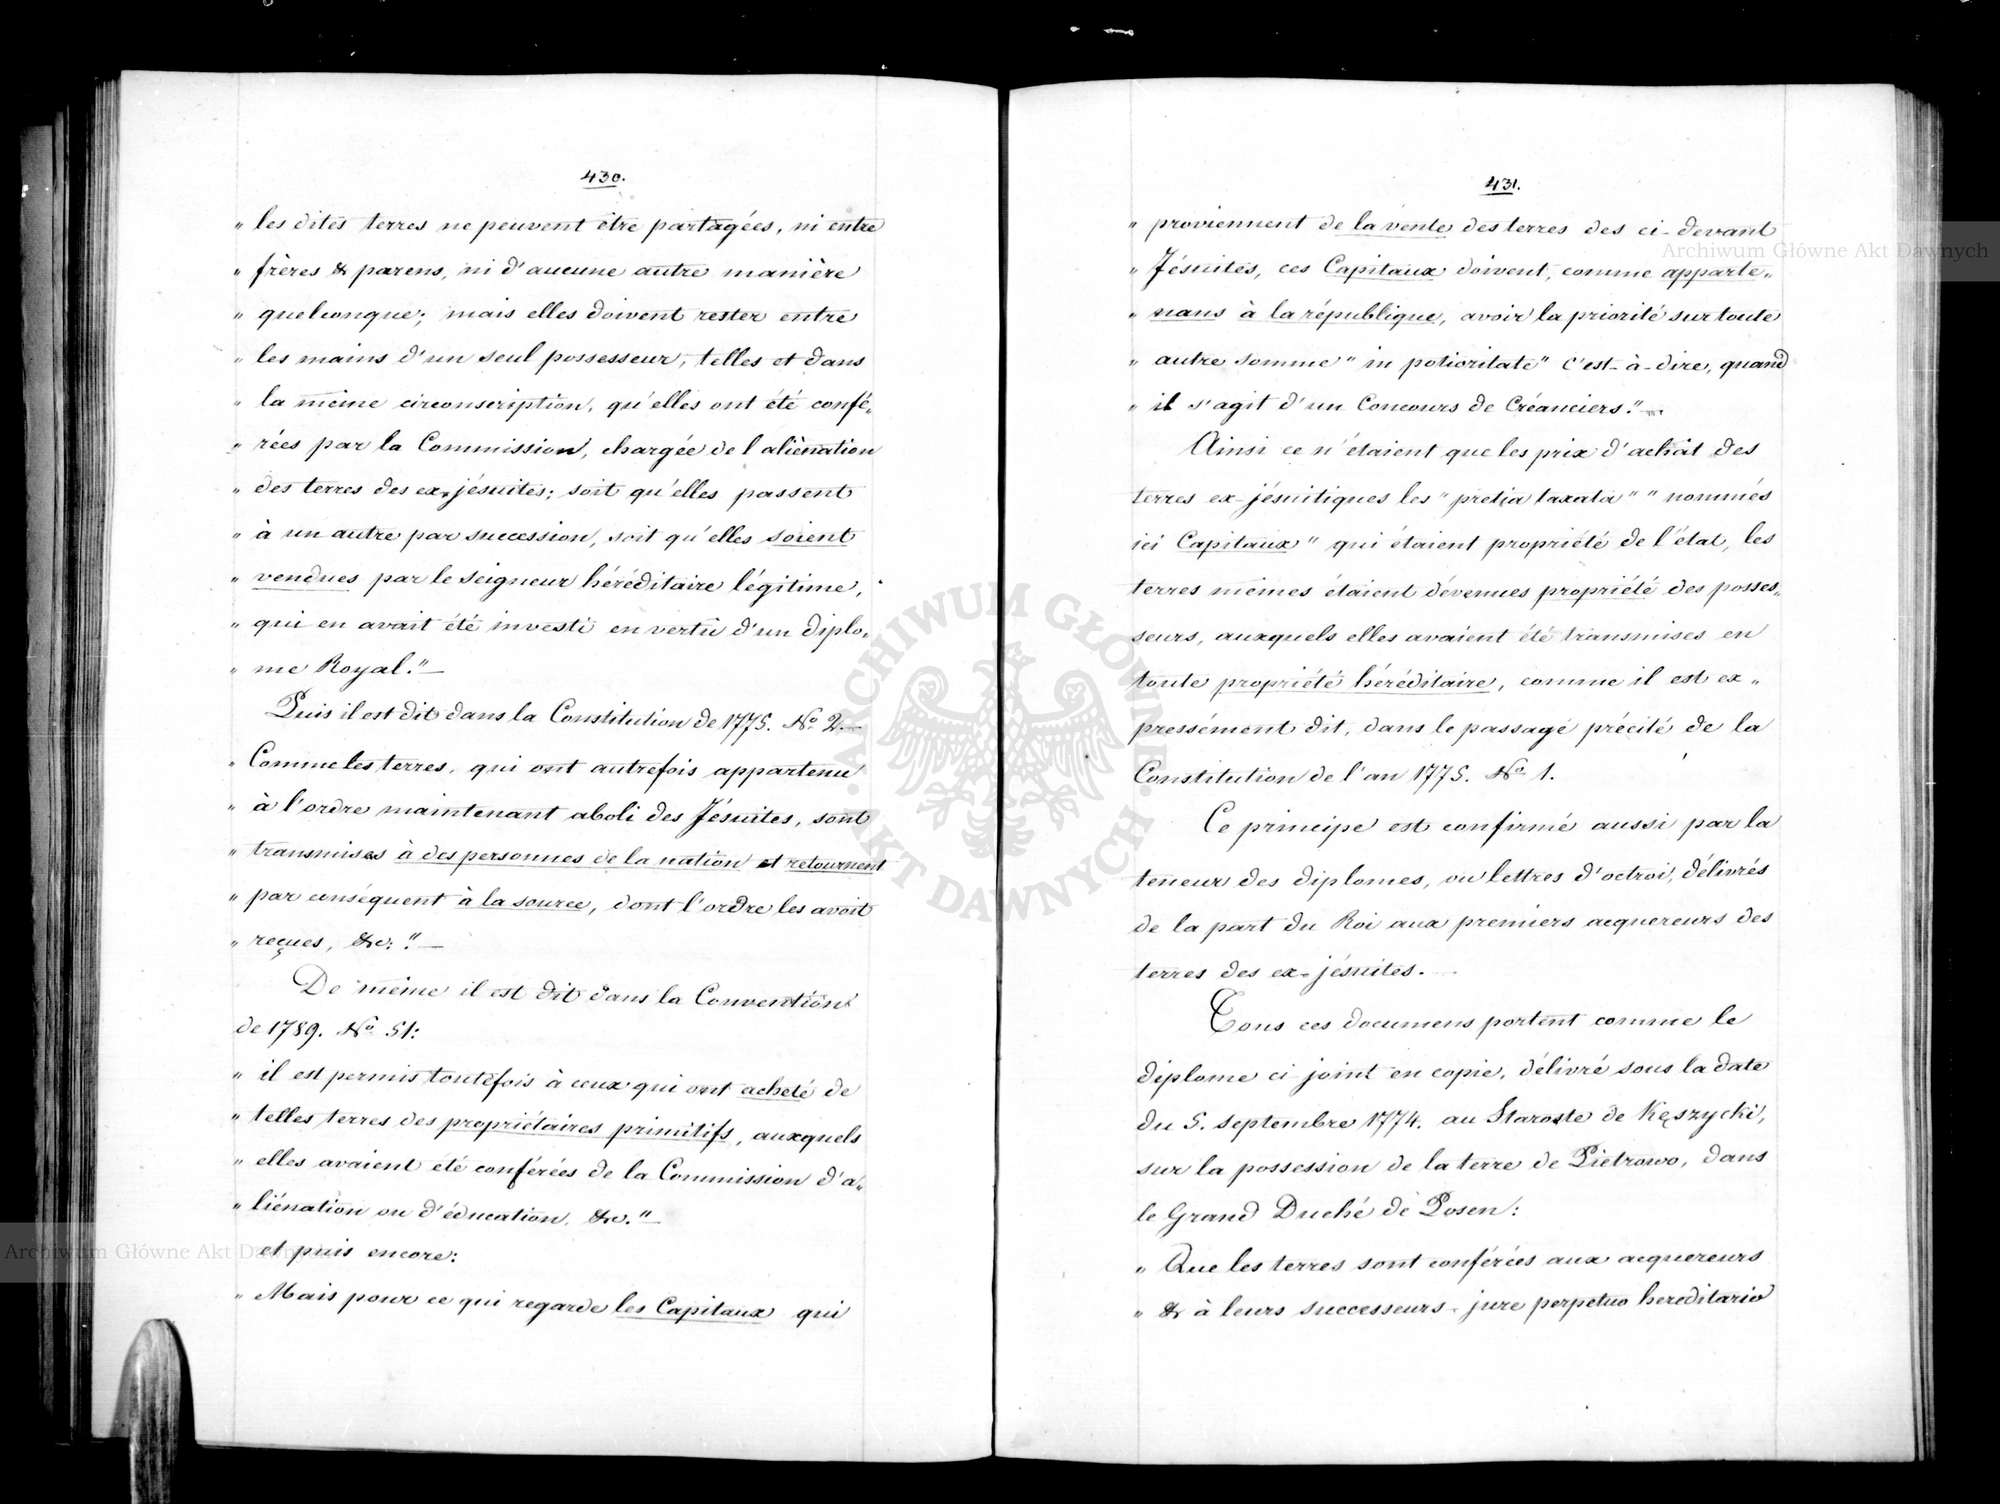 430.
„ les dites terres ne peuvent être partagées, ni entre
„ frères & parens, ni d'aucune autre manière
„ quelconque; mais elles doivent rester entre
„ les mains d'un seul possesseur, telles et dans
„ la même circonscription, qu'elles ont été confé„
„ rées par la Commission, chargée de l'aliénation
„ des terres des ex-jésuites; soit qu'elles passent
„ à un autre par succession, soit qu'elles soient
„ vendues par le seigneur héréditaire légitime,
„ qui en avait été investi en vertu d'un diplo„
„ me Royal."—
Puis il est dit dans la Constitution de 1775. No. 2.—
„ Comme les terres, qui ont autrefois appartenu
„ à l'ordre maintenant aboli des Jésuites, sont
„ transmises à des personnes de la nation et retournent
„ par conséquent à la source, dont l'ordre les avoit
„ reçues, &c."—
De même il est dit dans la Convention
de 1789. No. 51:
„ il est permis toutefois à ceux qui ont acheté de
„ telles terres des propriétaires primitifs, auxquels
„ elles avaient été conférées de la Commission d'a„
„ liénation ou d'éducation, &c."—
et puis encore:
„ Mais pour ce qui regarde les Capitaux qui
431.
„ proviennent de la vente des terres des ci-devant
„ Jésuites, ces Capitaux doivent, comme apparte„
„ nans à la république, avoir la priorité sur toute
„ autre somme "in potioritate" c'est-à-dire, quand
„ il s'agit d'un Concours de Créanciers."—
Ainsi ce n'étaient que les prix d'achat des
terres ex-jésuitiques les "pretia taxata" "nommés
ici Capitaux" qui étaient propriété de l'état, les
terres mêmes étaient dévenues propriété des posses„
seurs, auxquels elles avaient été transmises en
toute propriété héréditaire, comme il est ex„
pressément dit, dans le passage précité de la
Constitution de l'an 1775. No. 1.
Ce principe est confirmé aussi par la
teneur des diplomes, ou lettres d'octroi, délivrés
de la part du Roi aux premiers acquereurs des
terres des ex-jésuites.—
Tous ces documens portent comme le
diplome ci joint en copie, délivré sous la date
du 5. septembre 1774. au Staroste de Kęszycki,
sur la possession de la terre de Pietrowo, dans
le Grand Duché de Posen:
„ Que les terres sont conférées aux acquereurs
„ & à leurs successeurs, jure perpetuo hereditario
Archiwum Główne Akt Dawnych
Archiwum Główne Akt Dawnych
ARCHIWUM GŁÓWNE · AKT DAWNYCH ·